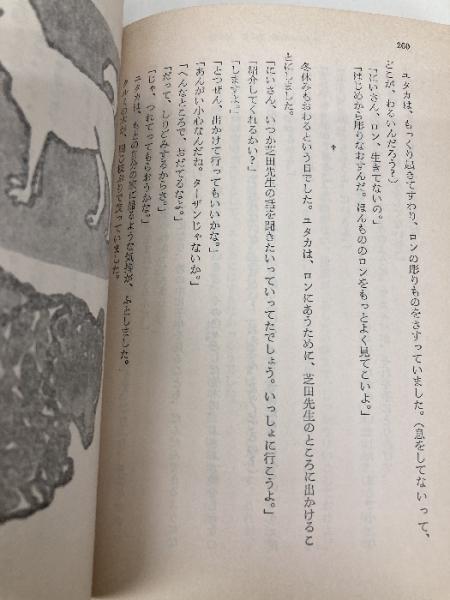 260
ユタカは、もっくり起きてすわり、ロンの彫りものをさすっていました。（息をしてないって、
どこが、わるいんだろう？）
「にいさん、ロン、生きてないの。」
「はじめから彫りなおすんだ。ほんもののロンをもっとよく見てこいよ。」
冬休みもおわるという日でした。ユタカは、ロンにあうために、芝田先生のところに出かけるこ
とにしました。
「にいさん、いつか芝田先生の話を聞きたいっていってたでしょう。いっしょに行こうよ。」
「紹介してくれるかい？」
「しますよ。」
「とつぜん、出かけて行ってもいいかな。」
「あんがい小心なんだね。ターザンじゃないか。」
「へんなところで、おだてるなよ。」
「だって、しりごみするからさ。」
「じゃ、つれてってもらおうかな。」
ユタカは、もとの自分の家に帰るような気持が、ふとしました。